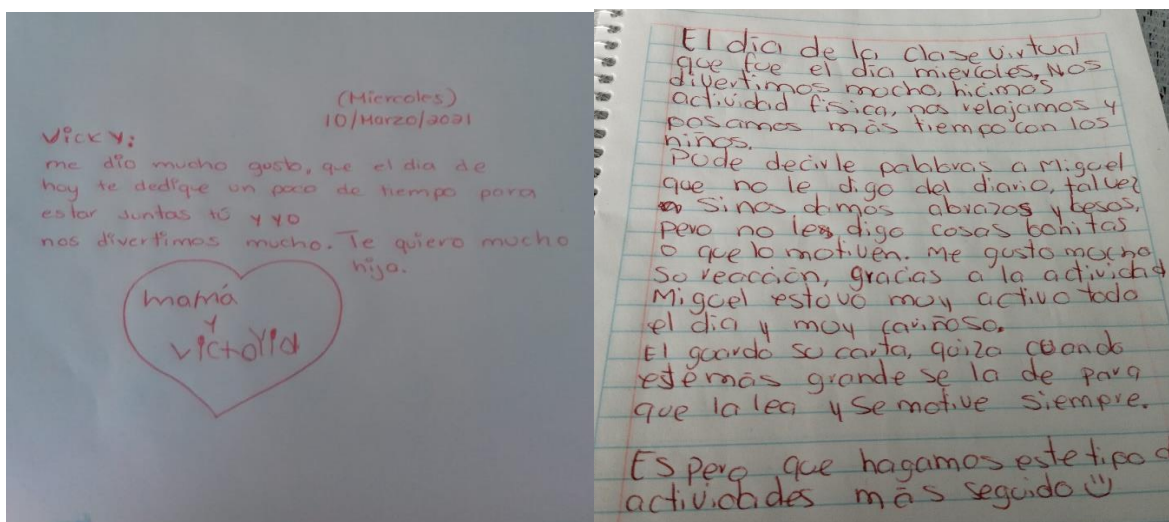 (Miercoles)
10/Marzo/2021
Vicky:
me dio mucho gusto, que el dia de
hoy te dedique un poco de tiempo para
estar juntas tú y yo
nos divertimos mucho. Te quiero mucho
hija.
mamá
y
victoria
El dia de la clase virtual
que fue el dia miercoles, Nos
divertimos mucho, hicimos
actividad física, nos relajamos y
pasamos más tiempo con los
niños.
Pude decirle palabras a Miguel
que no le digo del diario, tal vez
si nos damos abrazos y besos,
pero no les digo cosas bonitas
o que lo motiven. Me gusto mucho
su reacción, gracias a la activida
Miguel estuvo muy activo todo
el dia y muy cariñoso.
El guardo su carta, quiza cuando
esté más grande se la de para
que la lea y se motive siempre.
Espero que hagamos este tipo d
actividades más seguido